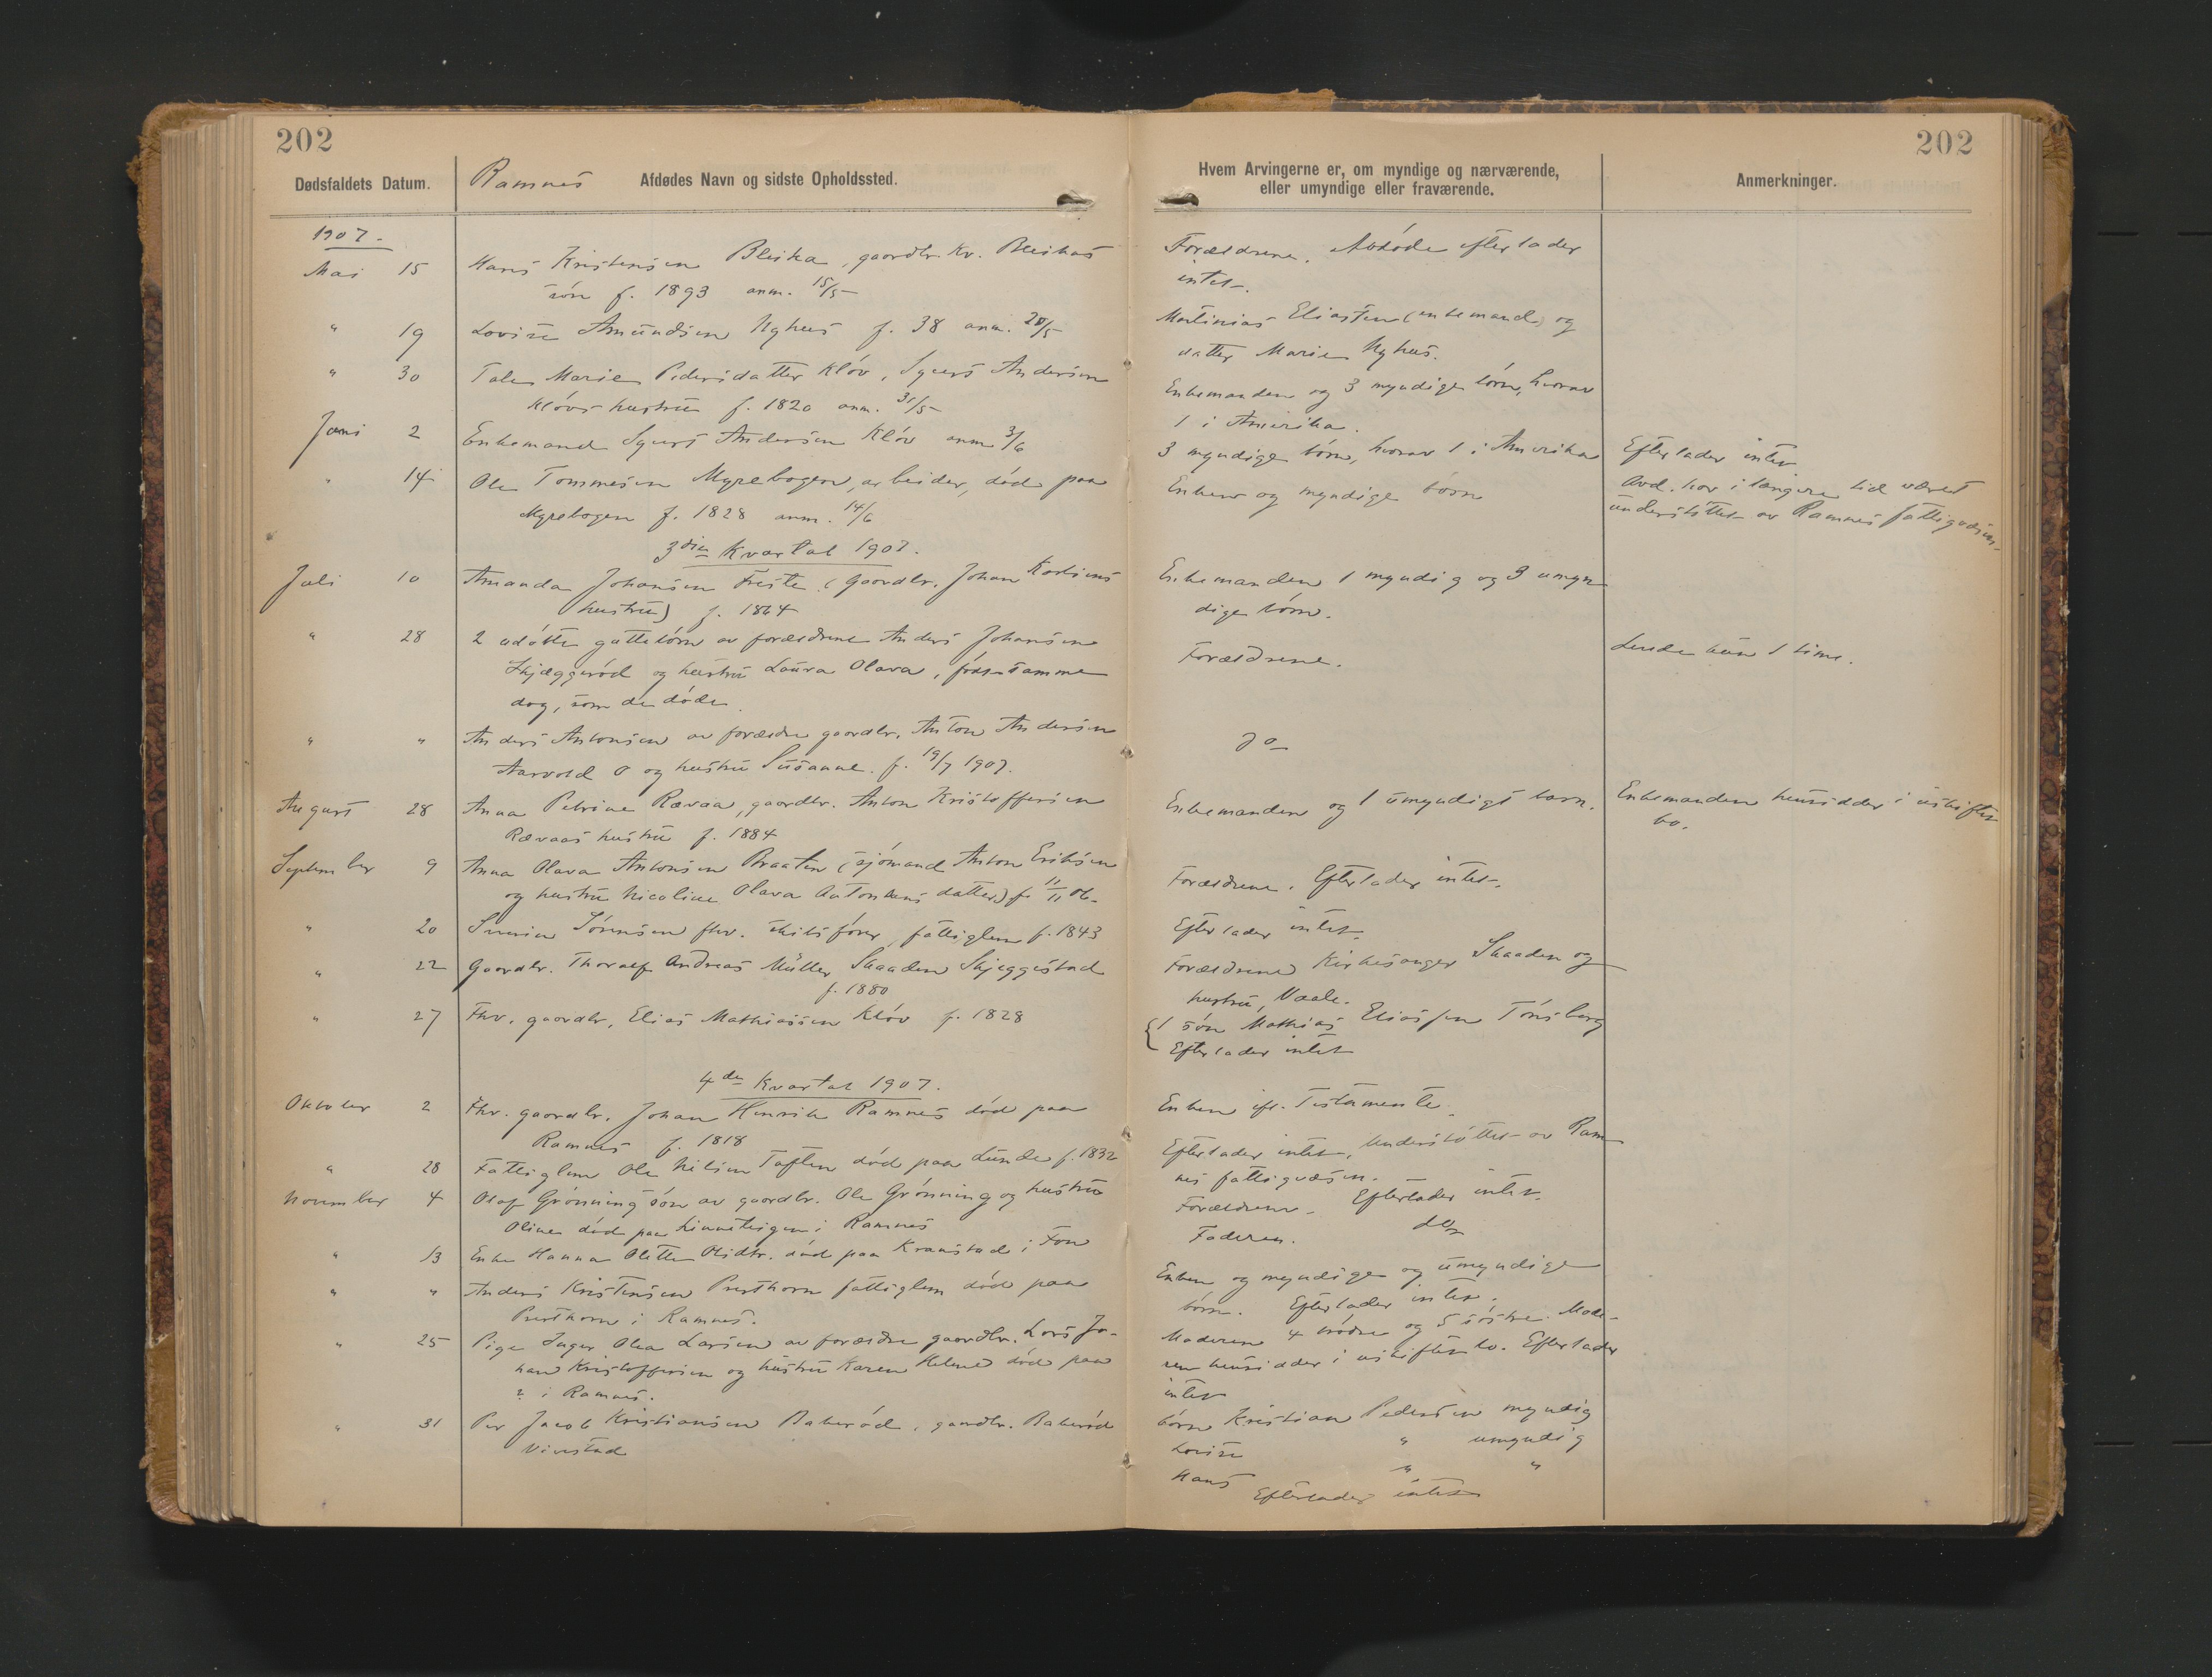 202
202
Dødsfaldets Datum.
Ramnes Afdødes Navn og sidste Opholdssted.
Hvem Arvingerne er, om myndige og nærværende,
eller umyndige eller fraværende.
Anmerkninger.
1907.
Mai 15 Hans Kristensen Bleika, gaardbr. Kr. Bleikas
søn f. 1893 anm. 15/5
Forældrene. Avdøde efterlader
intet.
" 19 Lovise Amundsen Nyhus f. 38 anm. 20/5
Martinius Eliassen (enkemand) og
datter Marie Nyhus.
" 30 Tale Marie Pedersdatter Kløv, Sjurs Andersen
Kløvs hustru f. 1820 anm. 31/5
Enkemanden og 3 myndige børn, hvorav
1 i Amerika.
Juni 2 Enkemand Sjurs Andersen Kløv anm 3/6
3 myndige børn, hvorav 1 i Amerika
Efterlader intet.
" 14 Ole Tommesen Myrebogen, arbeider, død paa
Myrebogen f. 1828 anm. 14/6
Enken og myndige børn
Avd. har i længere tid været
understøttet av Ramnes fattigvæsen.
3die Kvartal 1907.
Juli 10 Amanda Johansen Freste (gaardbr. Johan Karlsens
hustru) f. 1864
Enkemanden 1 myndig og 3 umyn-
dige børn.
" 28 2 udøbte guttebørn av forældrene Anders Johansen
Skjæggerød og hustru Laura Olava, født samme
dag, som de døde.
Forældrene.
Levde kun 1 time.
" " Anders Antonsen av forældre gaardbr. Anton Andersen
Aarvold og hustru Susanne. f. 19/7 1907.
do
August 28 Anna Petrine Rævaa, gaardbr. Anton Kristoffersen
Rævaas hustru f. 1884
Enkemanden og 1 umyndigt barn.
Enkemanden hensidder i uskiftet
bo.
September 9 Anna Olava Antonsen Braaten (sjømand Anton Eriksen
og hustru Nicoline Olava Antonsens datter) f. 11/11 06.
Forældrene. Efterlader intet.
" 20 Sørensen fhv. skibsfører, fattiglem f. 1843
Efterlader intet.
" 22 Gaardbr. Thoralf Andreas Müller Skaaden Skjeggestad
f. 1880
Forældrene Kirkesanger Skaaden og
hustru, Vaale.
" 27 Fhv. gaardbr. Elias Mathiassen Kløv f. 1828
1 søn Mathias Eliassen Tønsberg
Efterlader intet
4de Kvartal 1907.
Oktober 2 Fhv. gaardbr. Johan Henrik Ramnes død paa
Ramnes f. 1818
Enken ifl. Testamente.
" 28 Fattiglem Ole Nilsen Toften død paa Lunde f. 1832
Efterlader intet, understøttet av Ram-
nes fattigvæsen.
November 4 Olaf Grønning søn av gaardbr. Ole Grønning og hustru
Oline død paa Linneteigen i Ramnes
Forældrene. Efterlader intet.
" 13 Enke Hanna Olette Olsdtr. død paa Kranstad i Fon
Faderen. do
" " Anders Kristensen Presthorn fattiglem død paa
Presthorn i Ramnes.
Enken og myndige og umyndige
børn. Efterlader intet.
" 25 Pige Inger Olea Larsen av forældre gaardbr. Lars Jo-
han Kristoffersen og hustru Karen Helene død paa
? i Ramnes.
Moderen 4 brødre og 5 søstre. Mode-
ren hensidder i uskiftet bo. Efterlader
intet
" 31 Per Jacob Kristiansen Baberød, gaardbr. Baberød
Vivestad
børn Kristian Pedersen myndig
Lovise " umyndig
Hans " "
Efterlader intet